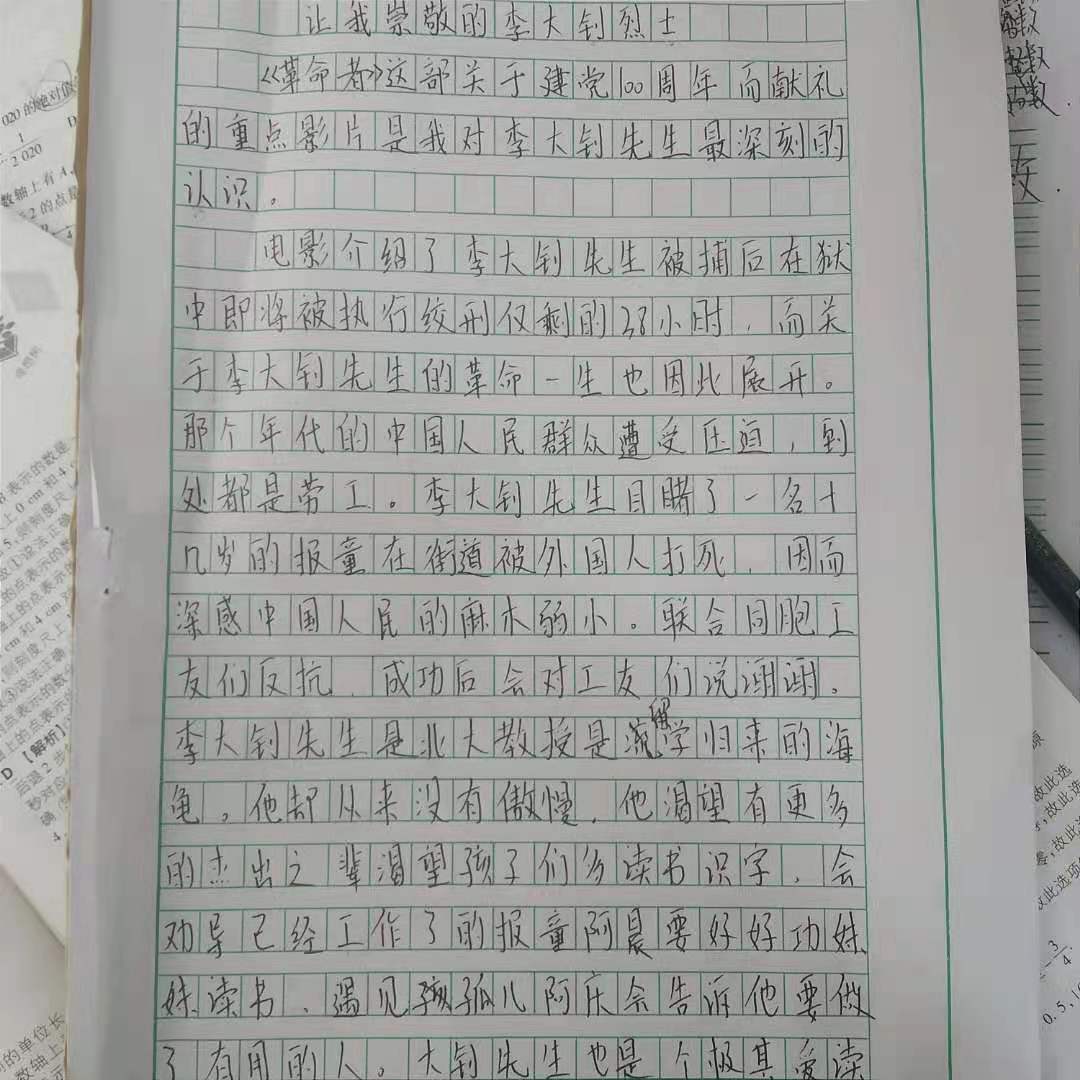 让我崇敬的李大钊烈士
《革命者》这部关于建党100周年而献礼
的重点影片是我对李大钊先生最深刻的
认识。
电影介绍了李大钊先生被捕后在狱
中即将被执行绞刑仅剩的38小时，而关
于李大钊先生的革命一生也因此展开。
那个年代的中国人民群众遭受压迫，到
处都是劳工。李大钊先生目睹了一名十
几岁的报童在街道被外国人打死，因而
深感中国人民的麻木弱小。联合同胞工
友们反抗，成功后会对工友们说谢谢。
李大钊先生是北大教授是留学归来的海
龟。他却从来没有傲慢，他渴望有更多
的杰出之辈渴望孩子们多读书识字，会
劝导已经工作了的报童阿晨要好好功妹
妹读书、遇见孩孤儿阿庆会告诉他要做
了有用的人。大钊先生也是个极其爱读
020的绝对值
1
2 020
数轴上有4
2的点是
D【解析】
后退2步
秒对应
的单位长
数轴上
故此选
故此选项
3
4
0.5,